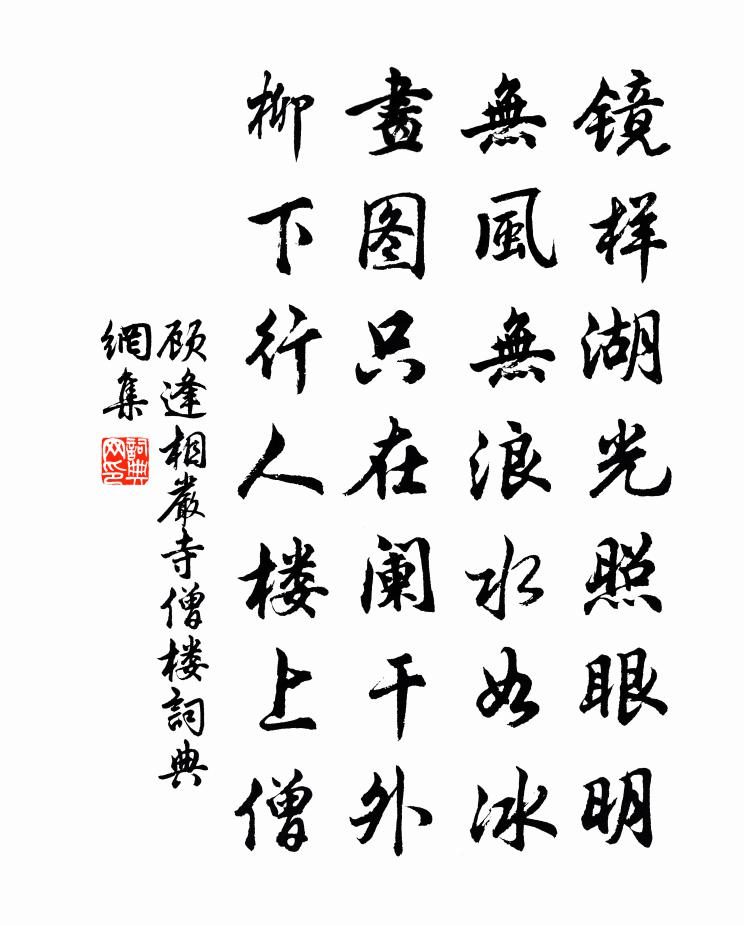 镜样湖光照眼明
無風無浪水如冰
畫图只在阑干外
柳下行人楼上僧
顾逢相嚴寺僧楼詞典
網集
詞典网印